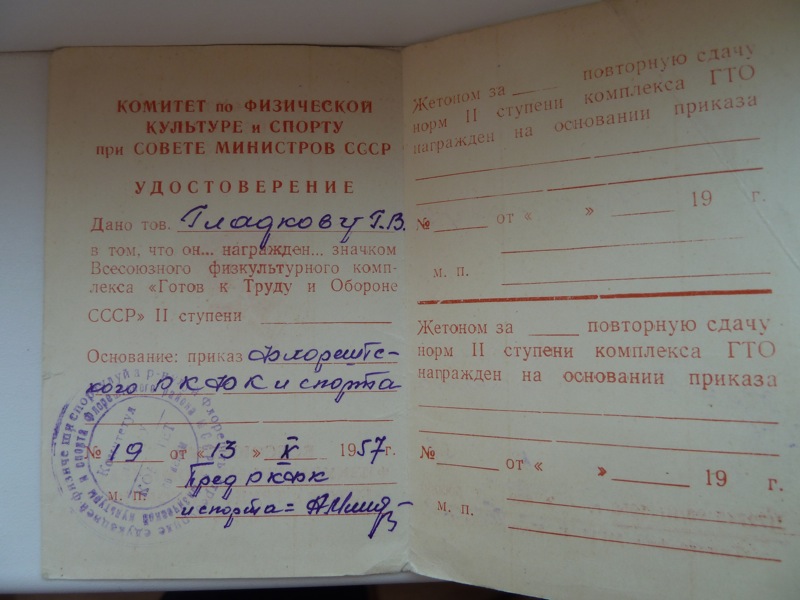 КОМИТЕТ по ФИЗИЧЕСКОЙ
КУЛЬТУРЕ и СПОРТУ
при СОВЕТЕ МИНИСТРОВ СССР
УДОСТОВЕРЕНИЕ
Дано тов. Гладкову Г.В.
в том, что он... награжден... значком
Всесоюзного физкультурного комп-
лекса «Готов к Труду и Обороне
СССР» II ступени
Основание: приказ Флорештс-
кого РКФК и спорта
№ 19 от «13» X 1957 г.
Пред РКФК
м. п.
и спорта =
Жетоном за повторную сдачу
норм II ступени комплекса ГТО
награжден на основании приказа
№ от « » 19 г.
м. п.
Жетоном за повторную сдачу
норм II ступени комплекса ГТО
награжден на основании приказа
№ от « » 19 г.
м. п.